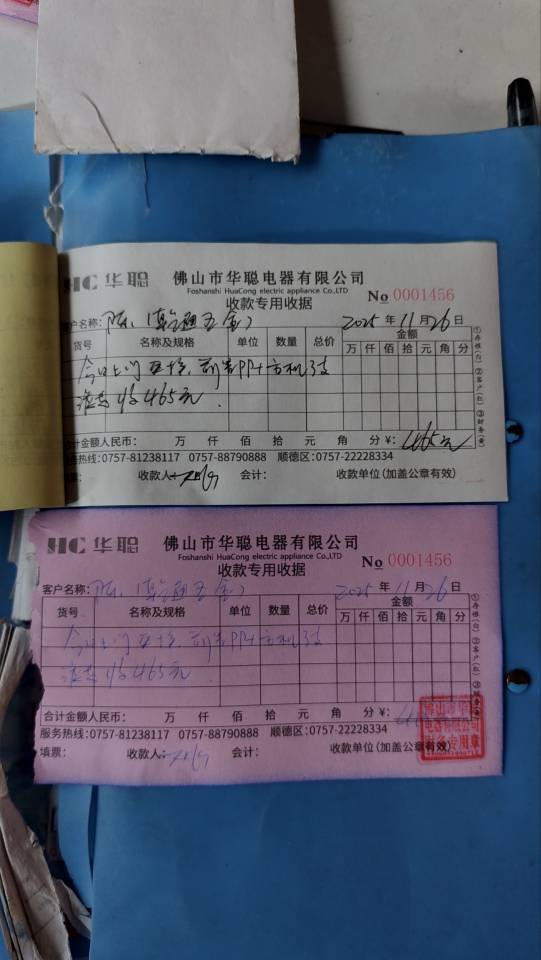 HC 华聪 佛山市华聪电器有限公司
Foshanshi HuaCong electric appliance Co.,LTD
收款专用收据 No 0001456
客户名称: 陈 2025 年 11 月 26 日
货号 名称及规格 单位 数量 总价 金额
万 仟 佰 拾 元 角 分
今日上门
收465元
①存根(白) ②客户(红) ③财务(黄)
合计金额人民币: 万 仟 佰 拾 元 角 分 ¥: 465元
服务热线:0757-81238117 0757-88790888 顺德区:0757-22228334
填票: 收款人: 会计: 收款单位(加盖公章有效)
HC 华聪 佛山市华聪电器有限公司
Foshanshi HuaCong electric appliance Co.,LTD
收款专用收据 No 0001456
客户名称: 陈 2025 年 11 月 26 日
货号 名称及规格 单位 数量 总价 金额
万 仟 佰 拾 元 角 分
今日上门
收465元
①存根(白) ②客户(红) ③财务(黄)
合计金额人民币: 万 仟 佰 拾 元 角 分 ¥:
服务热线:0757-81238117 0757-88790888 顺德区:0757-22228334
填票: 收款人: 会计: 收款单位(加盖公章有效)
佛山市华聪
电器有限公司
财务专用章